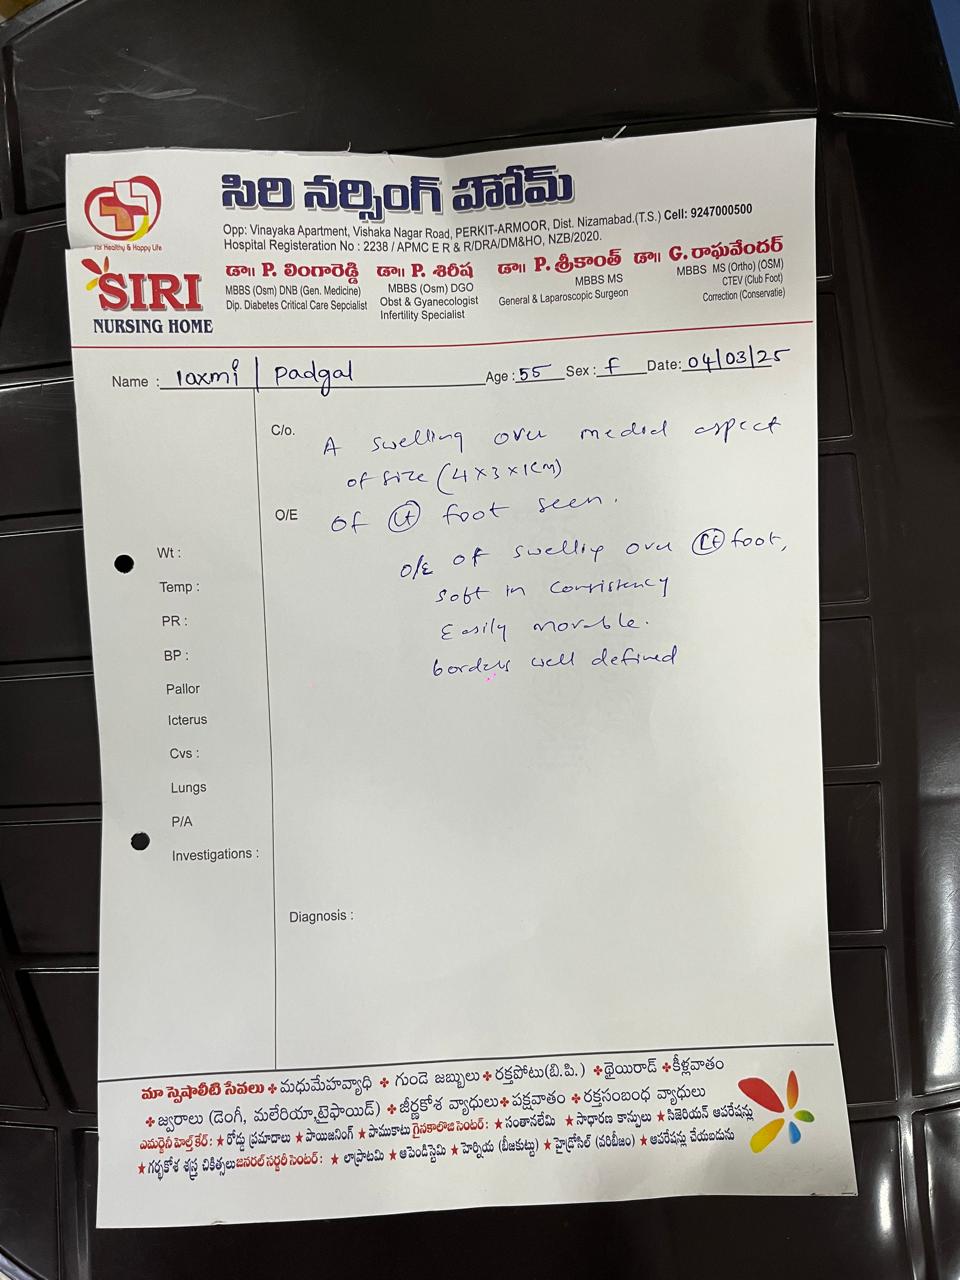 సిరి నర్సింగ్ హోమ్
Opp: Vinayaka Apartment, Vishaka Nagar Road, PERKIT-ARMOOR, Dist. Nizamabad.(T.S.) Cell: 9247000500
Hospital Registeration No : 2238 / APMC E R & R/DRA/DM&HO, NZB/2020.
For Healthy & Happy Life
SIRI
NURSING HOME
డా॥ P. లింగారెడ్డి
MBBS (Osm) DNB (Gen. Medicine)
Dip. Diabetes Critical Care Sepcialist
డా॥ P. శిరీష
MBBS (Osm) DGO
Obst & Gyanecologist
Infertility Specialist
డా॥ P. శ్రీకాంత్
MBBS MS
General & Laparoscopic Surgeon
డా॥ G. రాఘవేందర్
MBBS MS (Ortho) (OSM)
CTEV (Club Foot)
Correction (Conservatie)
Name : laxmi / Padgal Age : 55 Sex : f Date: 04/03/25
C/o. A swelling over medial aspect
of size (4 x 3 x 1cm)
O/E of Lt foot seen.
O/E of swellig over Lt foot,
soft in consistency
Easily movable.
borders well defined
Wt :
Temp :
PR :
BP :
Pallor
Icterus
Cvs :
Lungs
P/A
Investigations :
Diagnosis :
మా స్పెషాలిటి సేవలు ✤ మధుమేహవ్యాధి ✤ గుండె జబ్బులు ✤ రక్తపోటు(బి.పి.) ✤ థైయిరాడ్ ✤ కీళ్లవాతం
✤ జ్వరాలు (డెంగీ, మలేరియా,టైఫాయిడ్) ✤ జీర్ణకోశ వ్యాధులు ✤ పక్షవాతం ✤ రక్తసంబంధ వ్యాధులు
ఎమర్జెనీ హెల్త్ కేర్: ★ రోడ్డు ప్రమాదాలు ★ పాయిజనింగ్ ★ పాముకాటు గైనకాలొజి సెంటర్: ★ సంతానలేమి ★ సాధారణ కాన్పులు ★ సిజెరియన్ ఆపరేషన్లు
★ గర్భకోశ శస్త్ర చికిత్సలు జనరల్ సర్జరీ సెంటర్: ★ లాప్రొటమి ★ అపెండిస్టెమి ★ హెర్నియ (బీజకుట్టు) ★ హైడ్రోసిల్ (వరిబీజం) ★ ఆపరేషన్లు చేయబడును